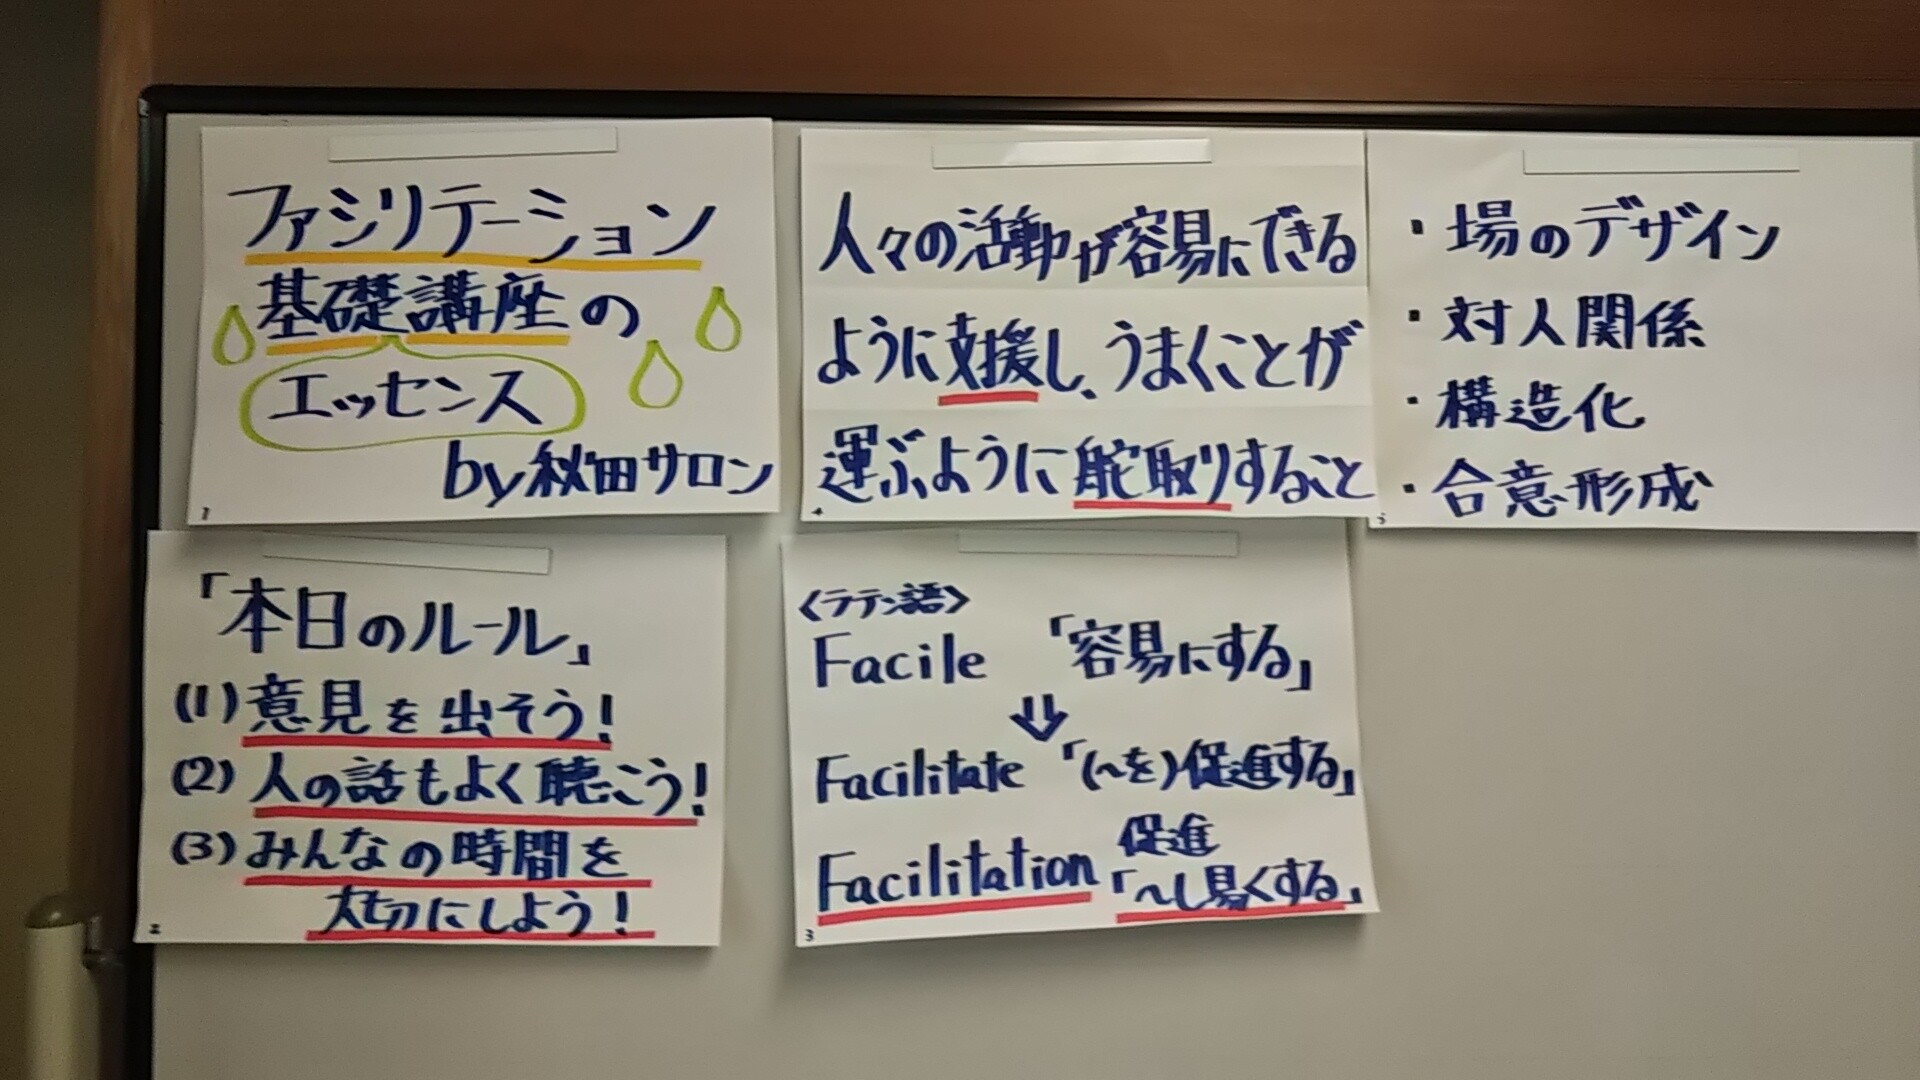 ファシリテーション
基礎講座の
エッセンス
by秋田サロン
1
「本日のルール」
(1)意見を出そう!
(2)人の話もよく聴こう!
(3)みんなの時間を
大切にしよう!
2
〈ラテン語〉
Facile 「容易にする」
⇓
Facilitate 「(〜を)促進する」
促進
Facilitation 「〜し易くする」
3
人々の活動が容易にできる
ように支援し、うまくことが
運ぶように舵取りすること
4
・場のデザイン
・対人関係
・構造化
・合意形成
5